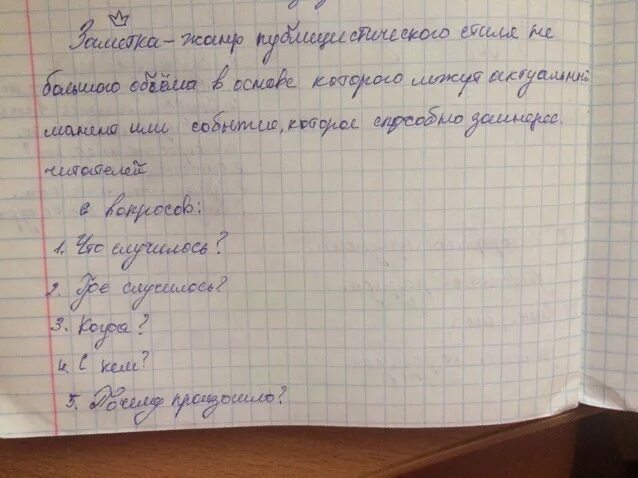 Заметка - жанр публицистического стиля не
большого объёма в основе которого лежут актуальный
момент или событие, которое способно заинерес.
читателей
6 вопросов:
1. Что случилось?
2. Где случилось?
3. Когда?
4. С кем?
5. Почему произошло?